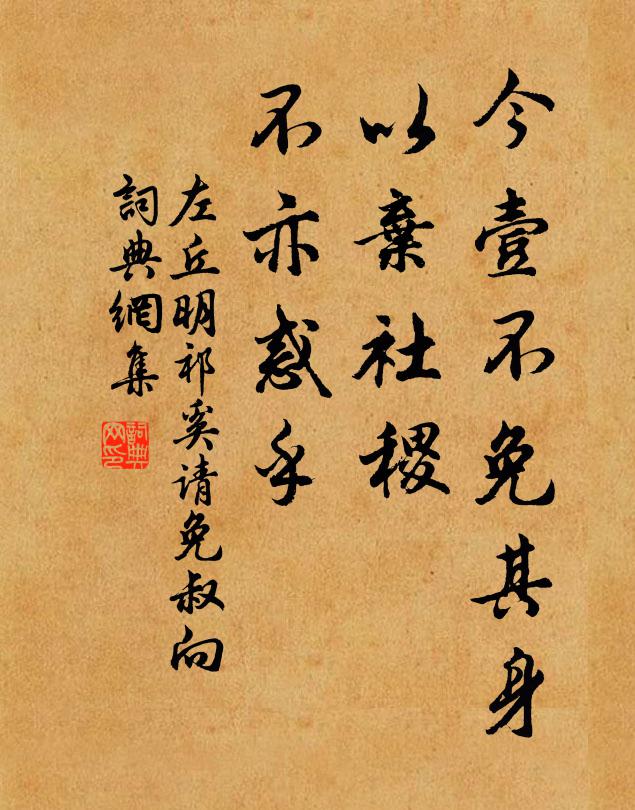 今壹不免其身
以棄社稷
不亦惑乎
左丘明祁奚请免叔向
詞典網集
詞典网印